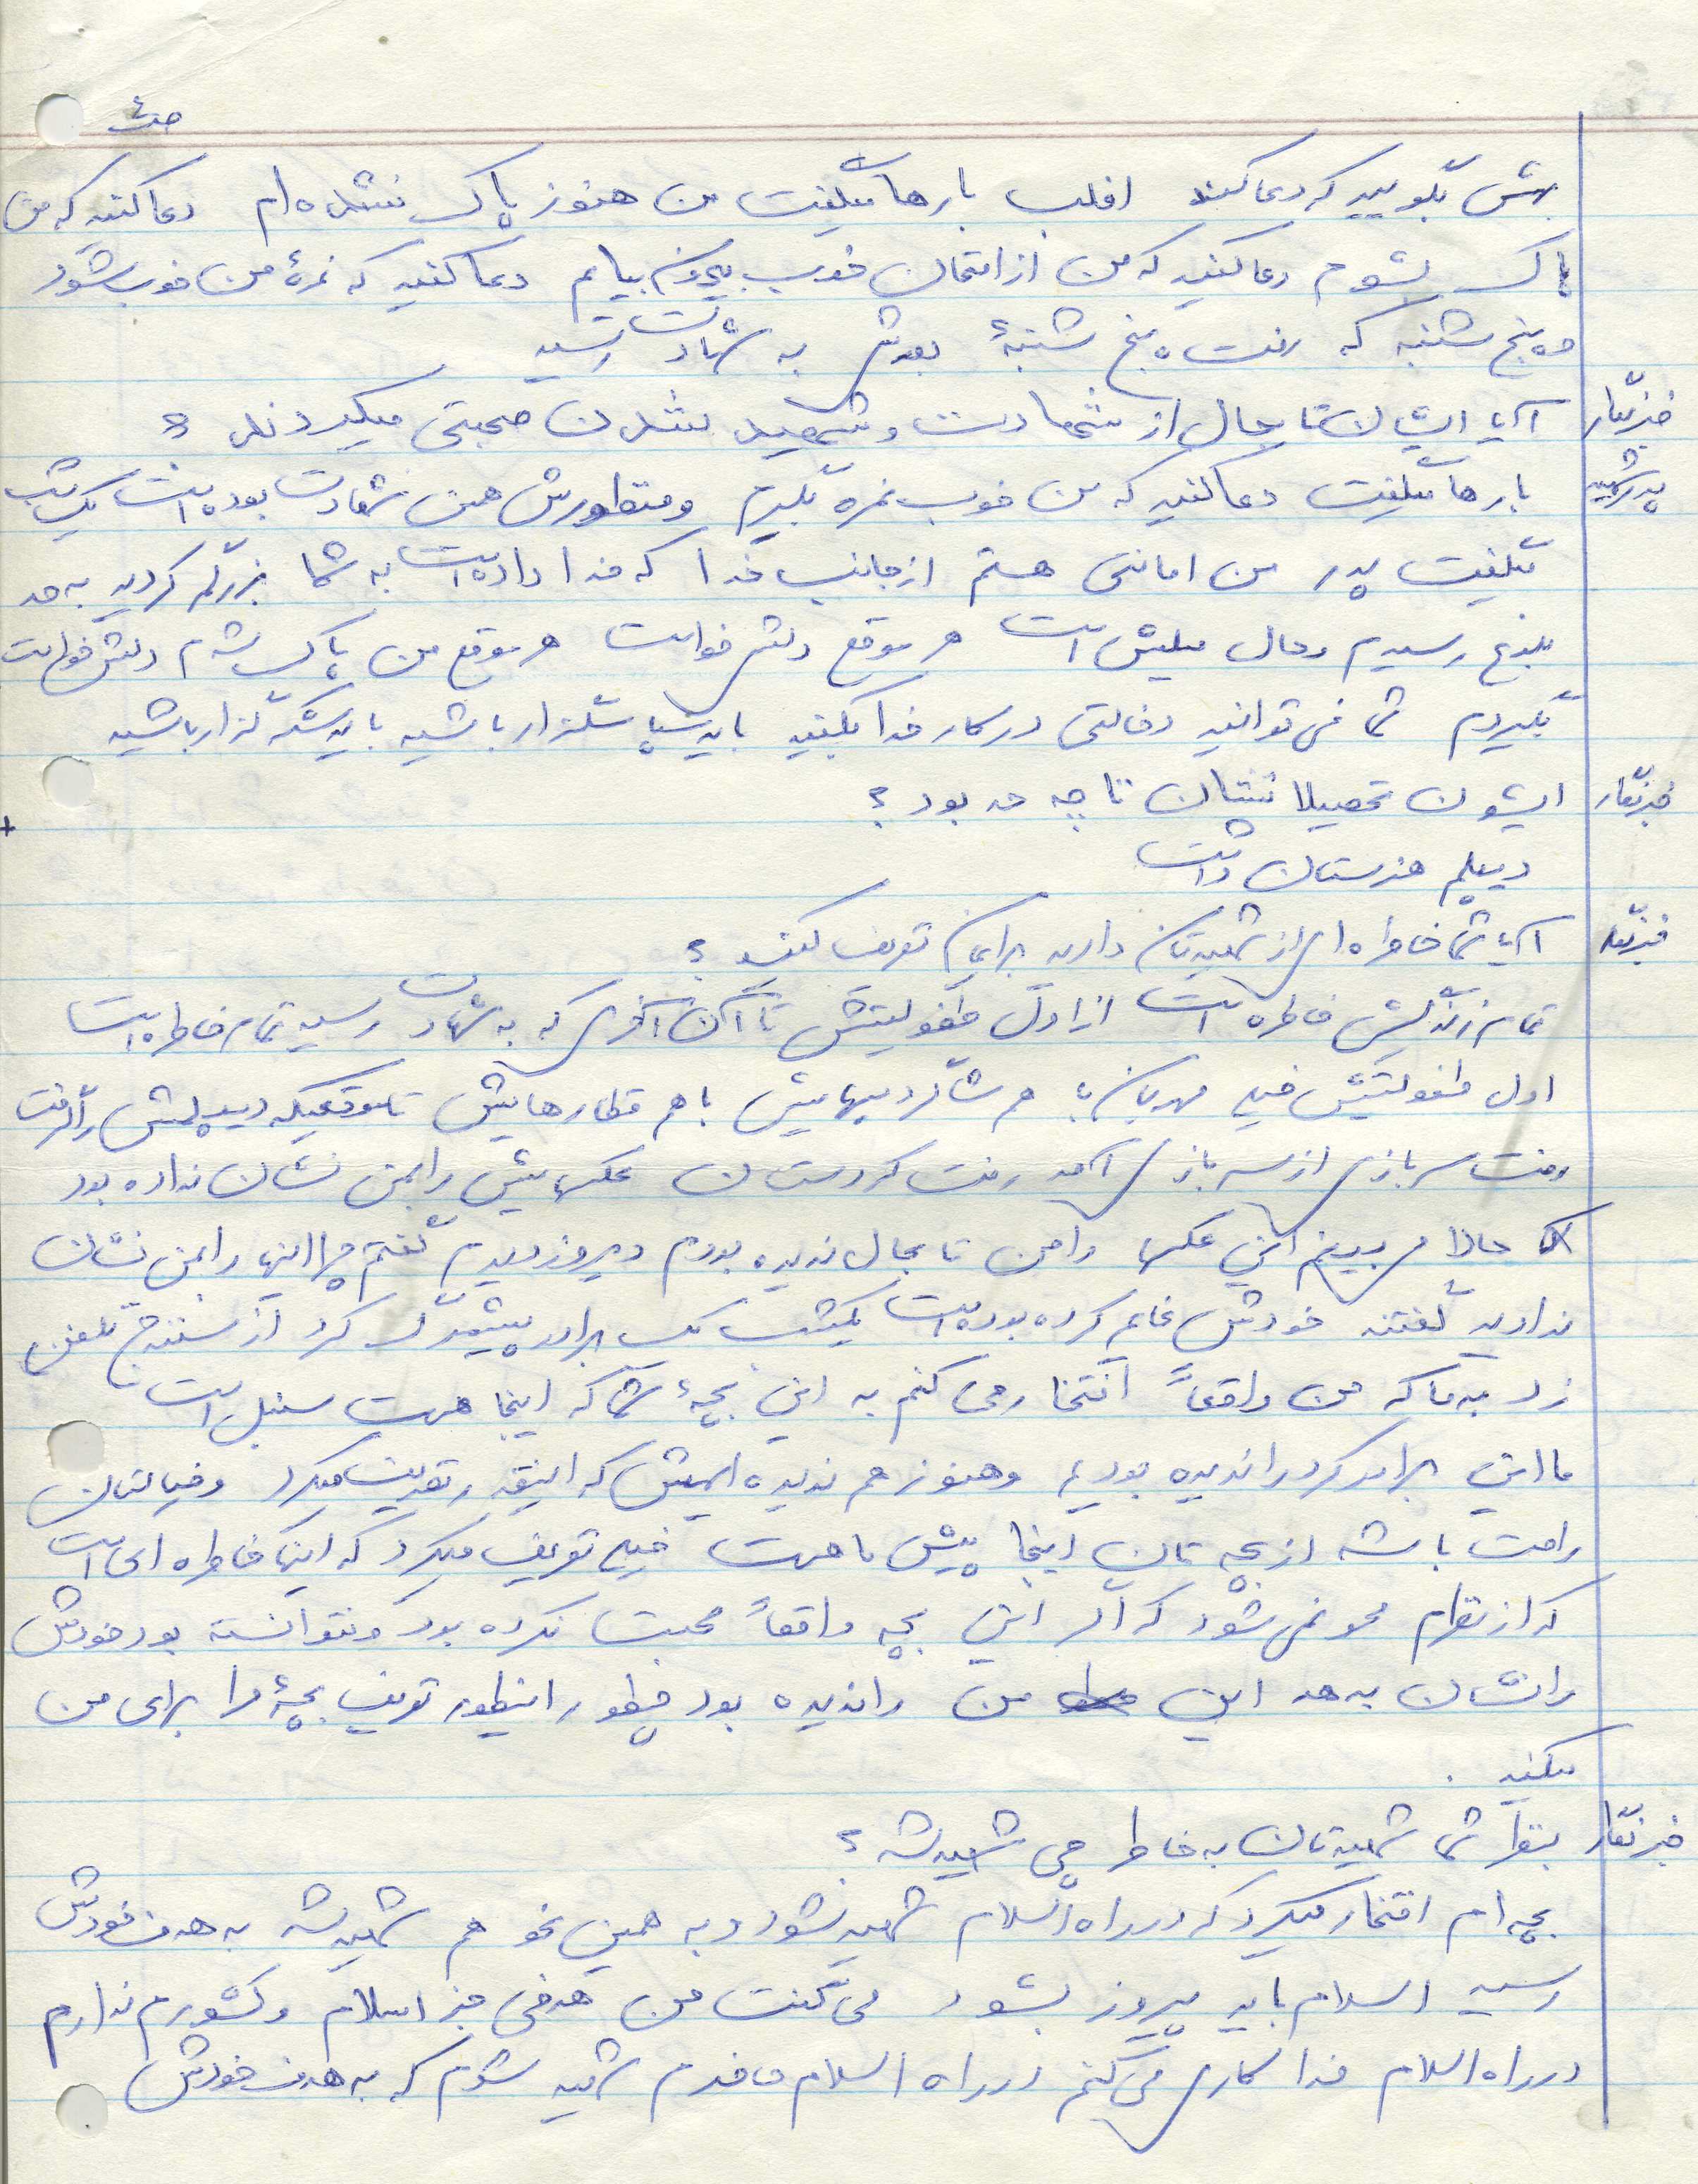 ص۴
بهش بگویید که دعا کند اغلب بارها میگفت من هنوز پاک نشده ام دعا کنید که من
پاک بشوم دعا کنید که من از امتحان خوب بیرون بیایم دعا کنید که نمرهٔ من خوب بشود
و پنج شنبه که رفت پنج شنبهٔ بعدش به شهادت رسید
خبرنگار آیا ایشان تا بحال از شهادت و شهید شدن صحبتی میکردند ؟
پدر شهید بارها میگفت دعا کنید که من خوب نمره بگیرم و منظورش همین شهادت بوده است یک شب
میگفت پدر من امانتی هستم از جانب خدا که خدا داده است به شما بزرگم کردید به حد
بلوغ رسیدم و حال میلیش است هر موقع دلش خواست هر موقع من پاک شدم دلش خواست
بگیردم شما نمی توانید دخالتی در کار خدا بکنید باید سپاسگزار باشید باید شکرگزار باشید
خبرنگار ایشون تحصیلاتشان تا چه حد بود ؟
دیپلم هنرستان داشت
خبرنگار آیا شما خاطره ای از شهیدتان دارید برایمان تعریف کنید ؟
تمام زندگیش خاطره است از اول طفولیتش تا آن آخری که به شهادت رسید تمام خاطره است
اول طفولیتش خیلی مهربان با هم شاگردیهایش با هم قطارهایش تا موقعیکه دیپلمش را گرفت
رفت سربازی از سربازی آمد رفت کردستان عکسهایش را بمن نشان نداده بود
حالا می بینم این عکسها را من تا بحال ندیده بودم دیروز دیدم گفتم چرا اینها را بمن نشان
ندادید گفتند خودش قایم کرده بوده است یکشب یک برادر پیشمرگ کرد از سنندج تلفن
زد به ما که من واقعاً افتخار می کنم به این بچهٔ شما که اینجا هست سنبل است
ما این برادر کرد را ندیده بودیم و هنوز هم ندیده ایمش که اینقدر تعریف میکرد و خیالتان
راحت باشد از بچه تان اینجا پیش ما هست خیلی تعریف میکرد که اینها خاطره ای است
که از نظرم محو نمی شود که اگر این بچه واقعاً محبت نکرده بود و نتوانسته بود خودش
را نشان بدهد این من را ندیده بود چطور اینطور تعریف بچهٔ مرا برای من
میکنید .
خبرنگار بنظر شما شهیدتان به خاطر چی شهید شد ؟
بچه ام افتخار میکرد که در راه اسلام شهید بشود و به همین نحو هم شهید شد به هدف خودش
رسید اسلام باید پیروز بشود می گفت من هدفی جز اسلام و کشورم ندارم
در راه اسلام فداکاری می کنم در راه اسلام حاضرم شهید شوم که به هدف خودش